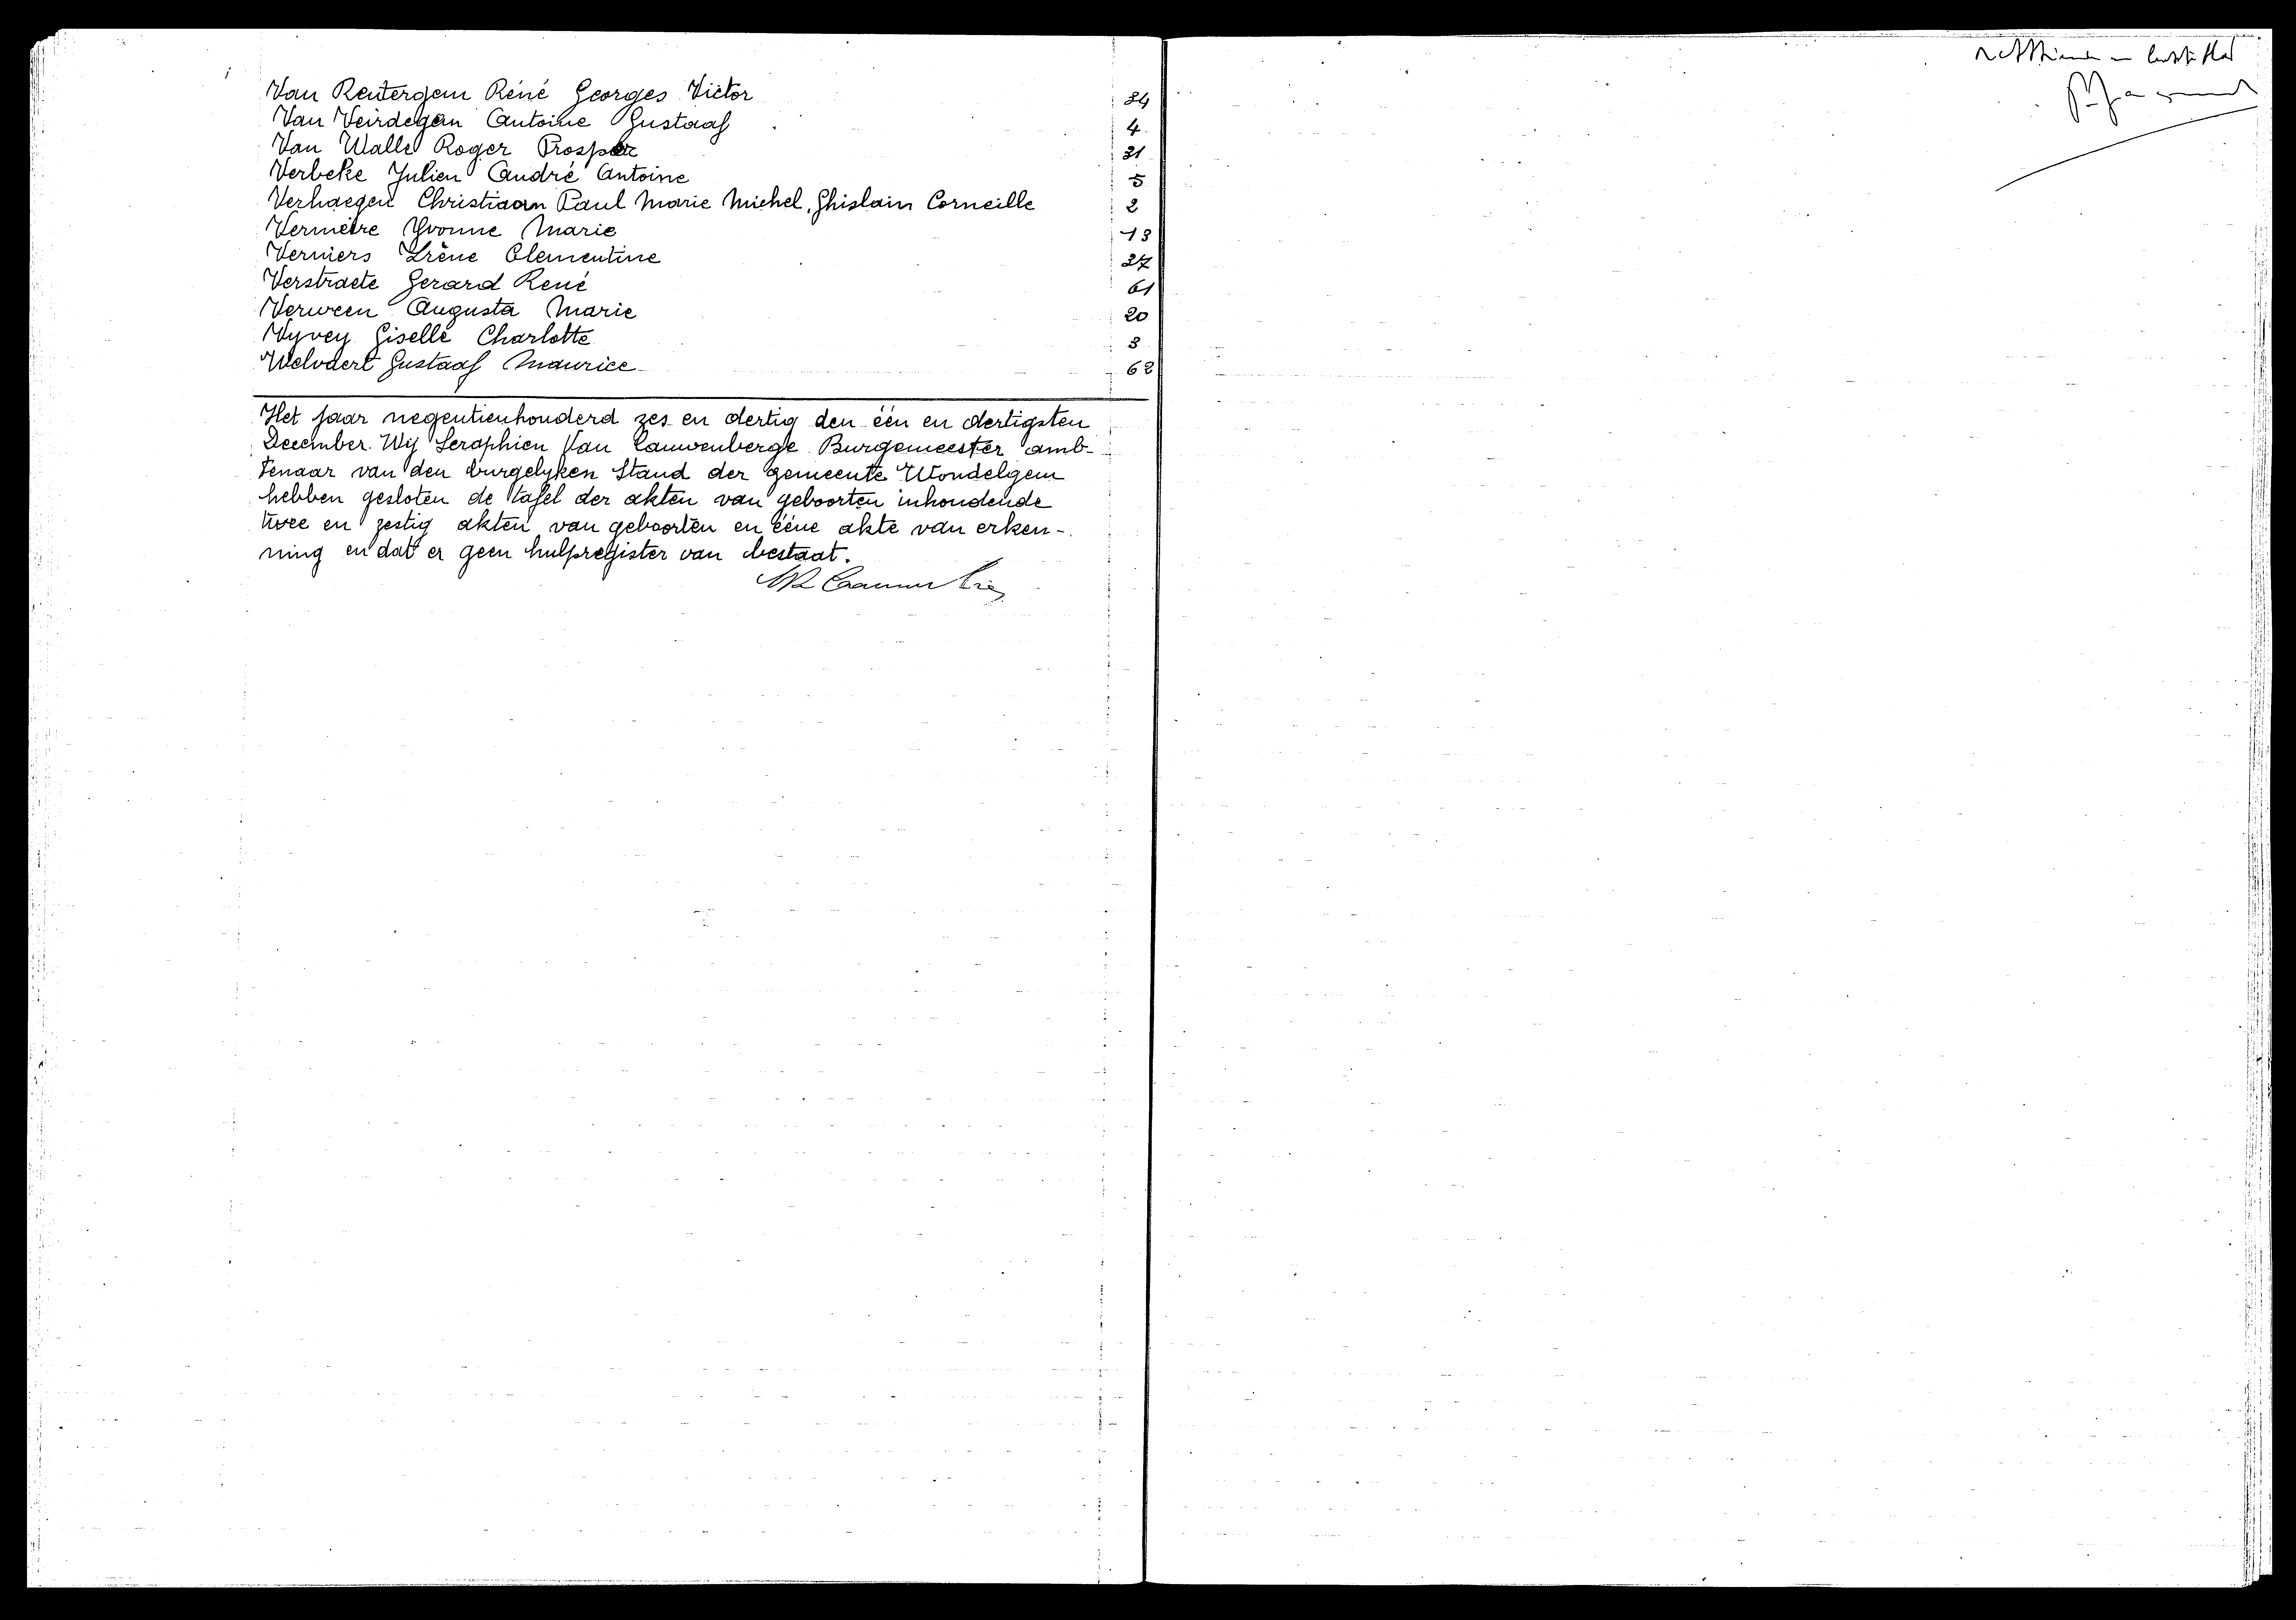 Van Reutergem Réné Georges Victor 34
Van Veirdegem Antoine Gustaaf 4
Van Walle Roger Prosper 31
Verbeke Julien André Antoine 5
Verhaegen Christiaan Paul Marie Michel, Ghislain Corneille 2
Vermeire Yvonne Marie 13
Verniers Irène Clementine 27
Verstraete Gerard René 61
Verween Augusta Marie 20
Vyvey Giselle Charlotte 3
Welvaert Gustaaf Maurice 62
Het jaar negentienhonderd zes en dertig den één en dertigsten
December. Wij Seraphien Van Cauwenberge Burgemeester amb-
tenaar van den burgelyken Stand der gemeente Wondelgem
hebben gesloten de tafel der akten van geboorten inhoudende
twee en zestig akten van geboorten en ééne akte van erken-
ning en dat er geen hulpregister van bestaat.